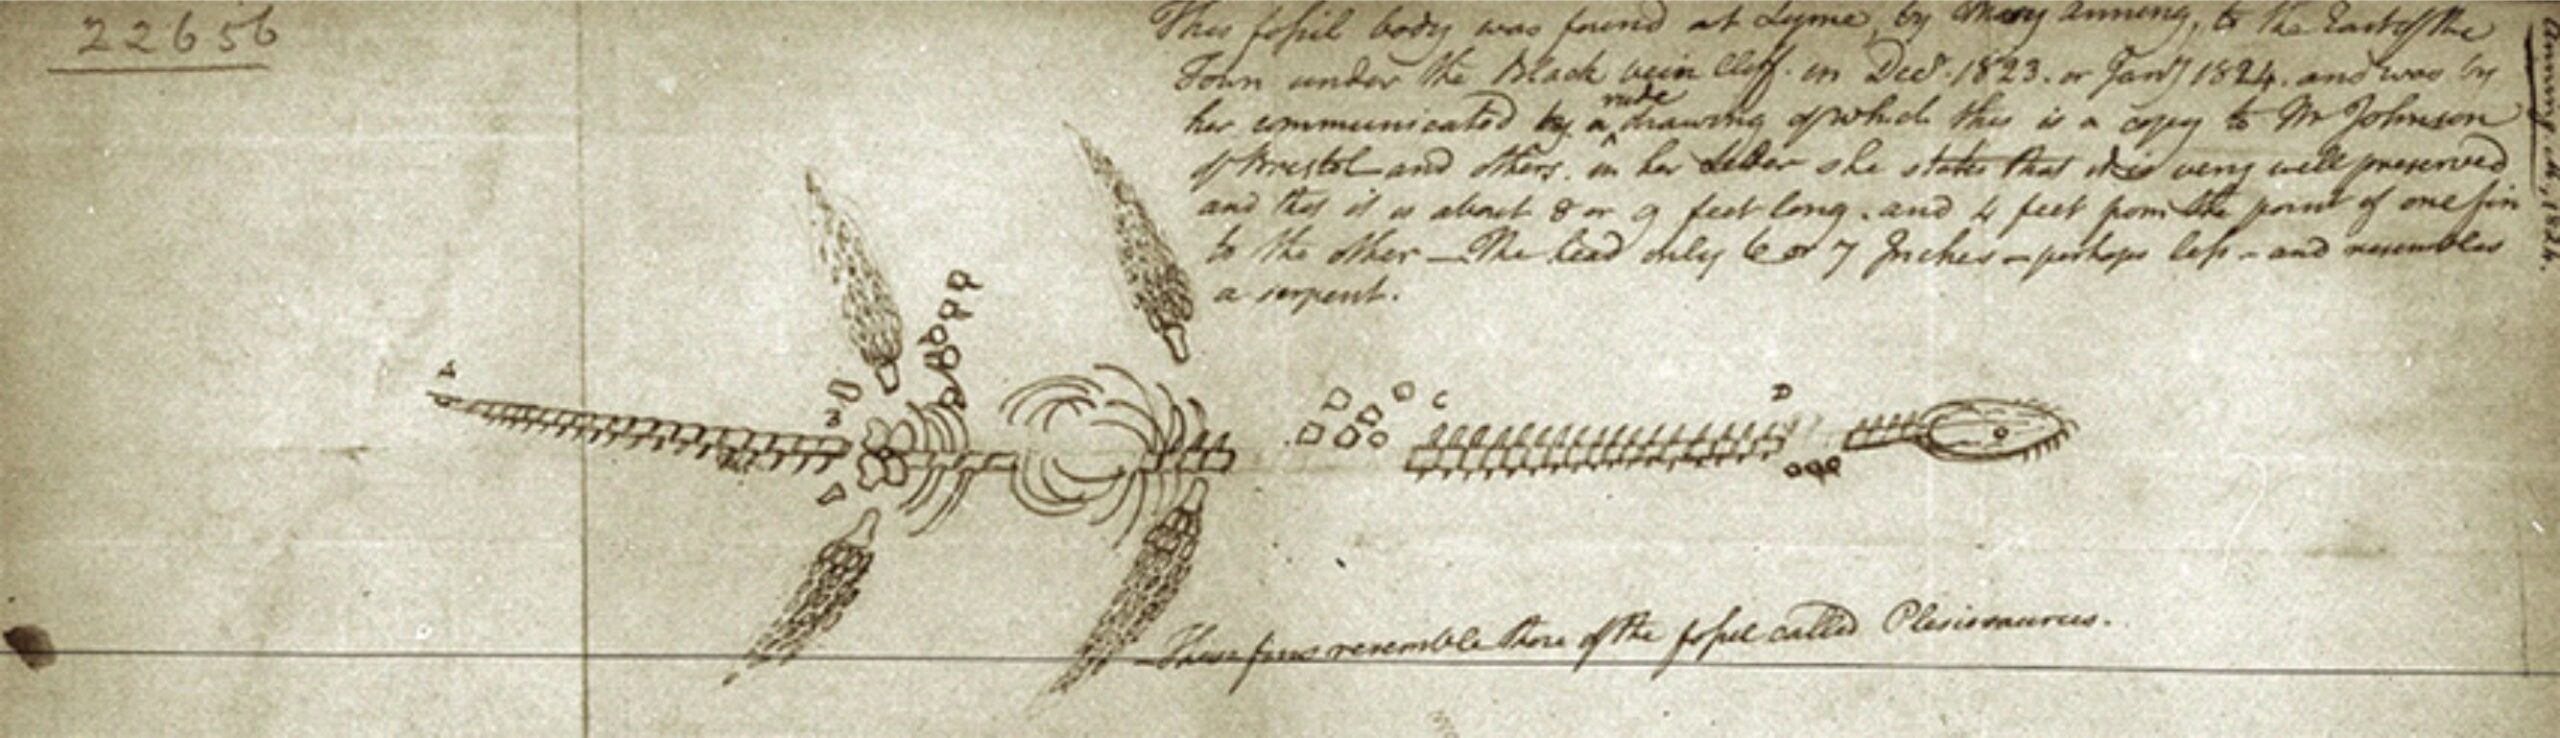 22656
This fossil body was found at Lyme, by Mary Anning, to the East of the
Town under the Black vein Cliff. in Decr. 1823. or Jany 1824. and was by
her communicated by a rude drawing of which this is a copy to Mr Johnson
of Bristol and others. in her Letter she states that it is very well preserved
and this it is about 8 or 9 feet long. and 4 feet from the point of one fin
to the other — The head only 6 or 7 Inches — perhaps less — and resembles
a serpent.
A
B
C
D
These fins resemble those of the fossil called Plesiosaurus.
Anning 1824.